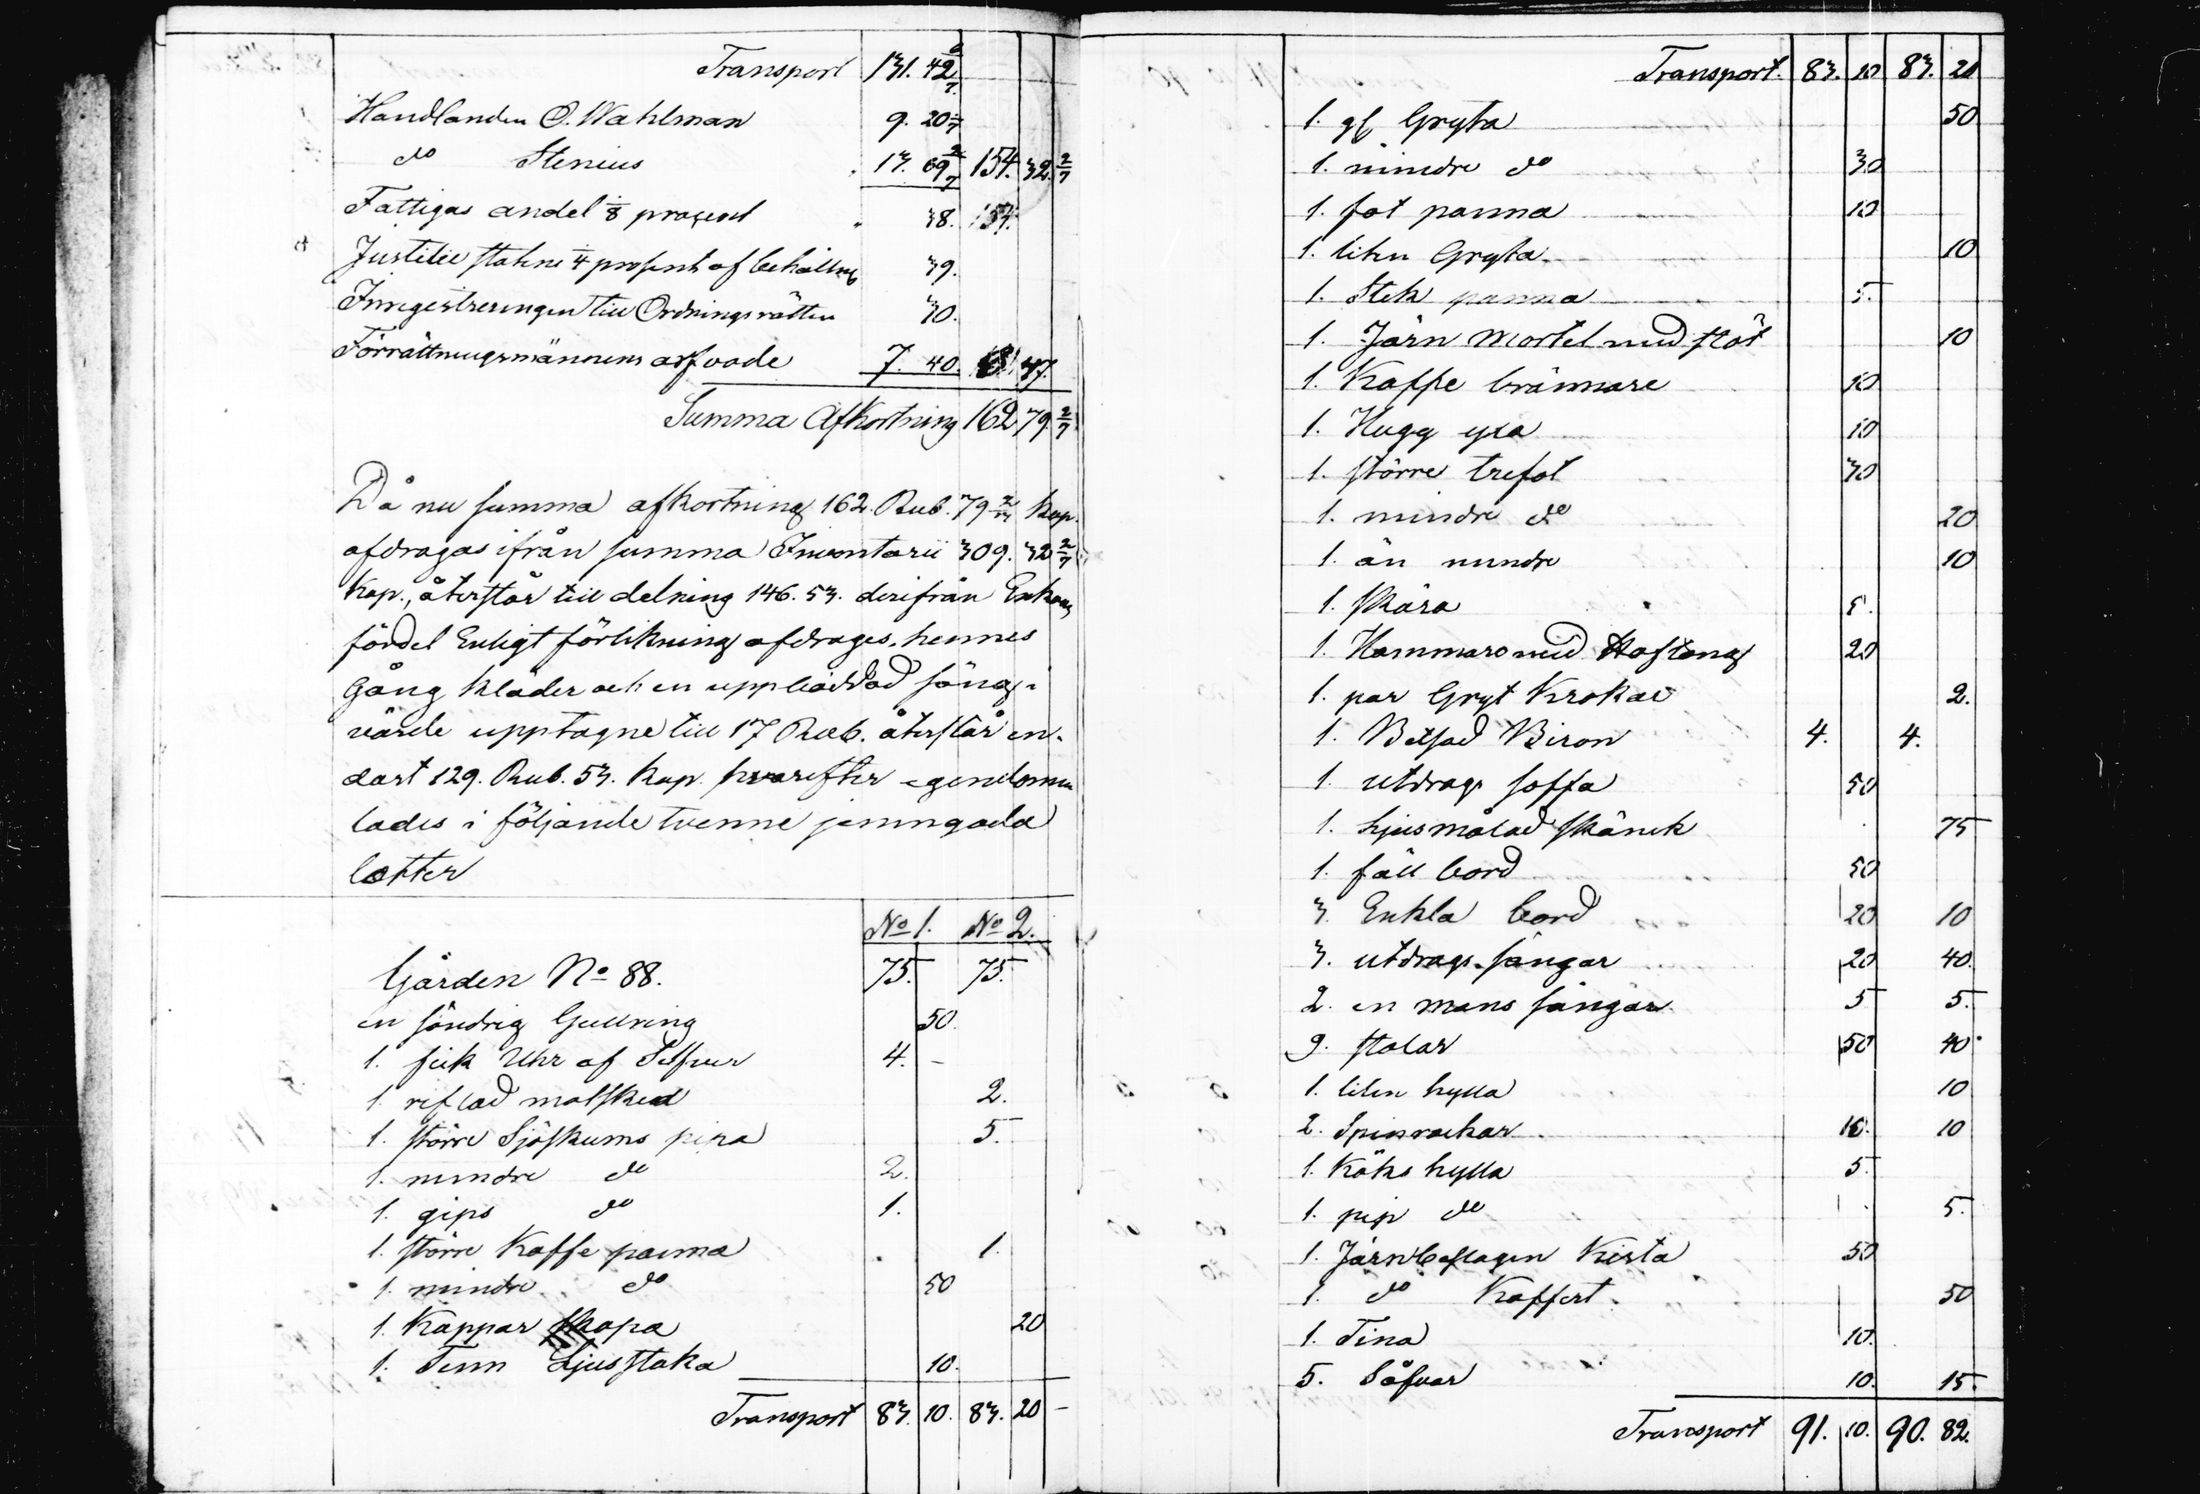 Transport 131. 42 6/7
Handlanden O. Wahlman 9. 20 1/7
do Stenius 13. 69 2/7 154. 32 2/7
Fattigas andel 1/8 procent 38.
Justitie staten 1/4 procent af behålln 39.
Inregistreringen till Ordningsrätten 30.
Förrättningsmännens arfvode 7. 40. 8. 47.
Summa Afkortning 162 79 2/7
Då nu summa afkortning 162. Rub. 79 2/7 kop.
afdragas ifrån summa Inventarii 309. 32 2/7
Kop., återstår till delning 146. 53. derifrån Enkans
fördel Enligt förlikning afdrages, hennes
Gång kläder och en uppbäddad säng i
värde upptagne till 17 Rub. återstår en-
dast 129. Rub. 53. Kop. hvarefter egendomen
lades i följande tvenne jemngoda
lotter
No 1. No 2.
Gården No 88. 75. 75.
en söndrig Gullring 50.
1. fick Uhr af Silfver 4. -
1. riflad matsked 2.
1. större Sjöskums pipa 5.
1. mindre do 2.
1. gips do 1.
1. större Kaffe panna 1.
1. mindre do 50
1. Kappar skopa 20
1. Tenn Ljusstaka 10.
Transport 83. 10. 83. 20 -
Transport. 83. 10 83. 20
1. gl Gryta 50
1. mindre do 30
1. fot panna 10
1. liten Gryta 10
1. Stek panna 5.
1. Järn mortel med stöt 10
1. Kaffe brännare 10
1. Hugg yxa 10
1. större trefot 30
1. mindre do 20
1. än mindre 10
1. skära 5.
1. Hammare med Hoftång 20
1. par Gryt Krokar 2.
1. Betsad Biron 4. 4.
1. utdrags soffa 50
1. Ljusmålad skänk 75
1. fäll bord 50
3. Enkla bord 20 10
3. utdrags sängar 20 40.
2. en mans sängar 5 5.
9. stolar 50 40.
1. liten hylla 10
2. Spinrockar 10. 10
1. Köks hylla 5.
1. pip do 5.
1. Järnbeslagen Kista 50
1. do Koffert 50
1. Tina 10.
5. Såfvar 10. 15.
Transport 91. 10. 90. 82.